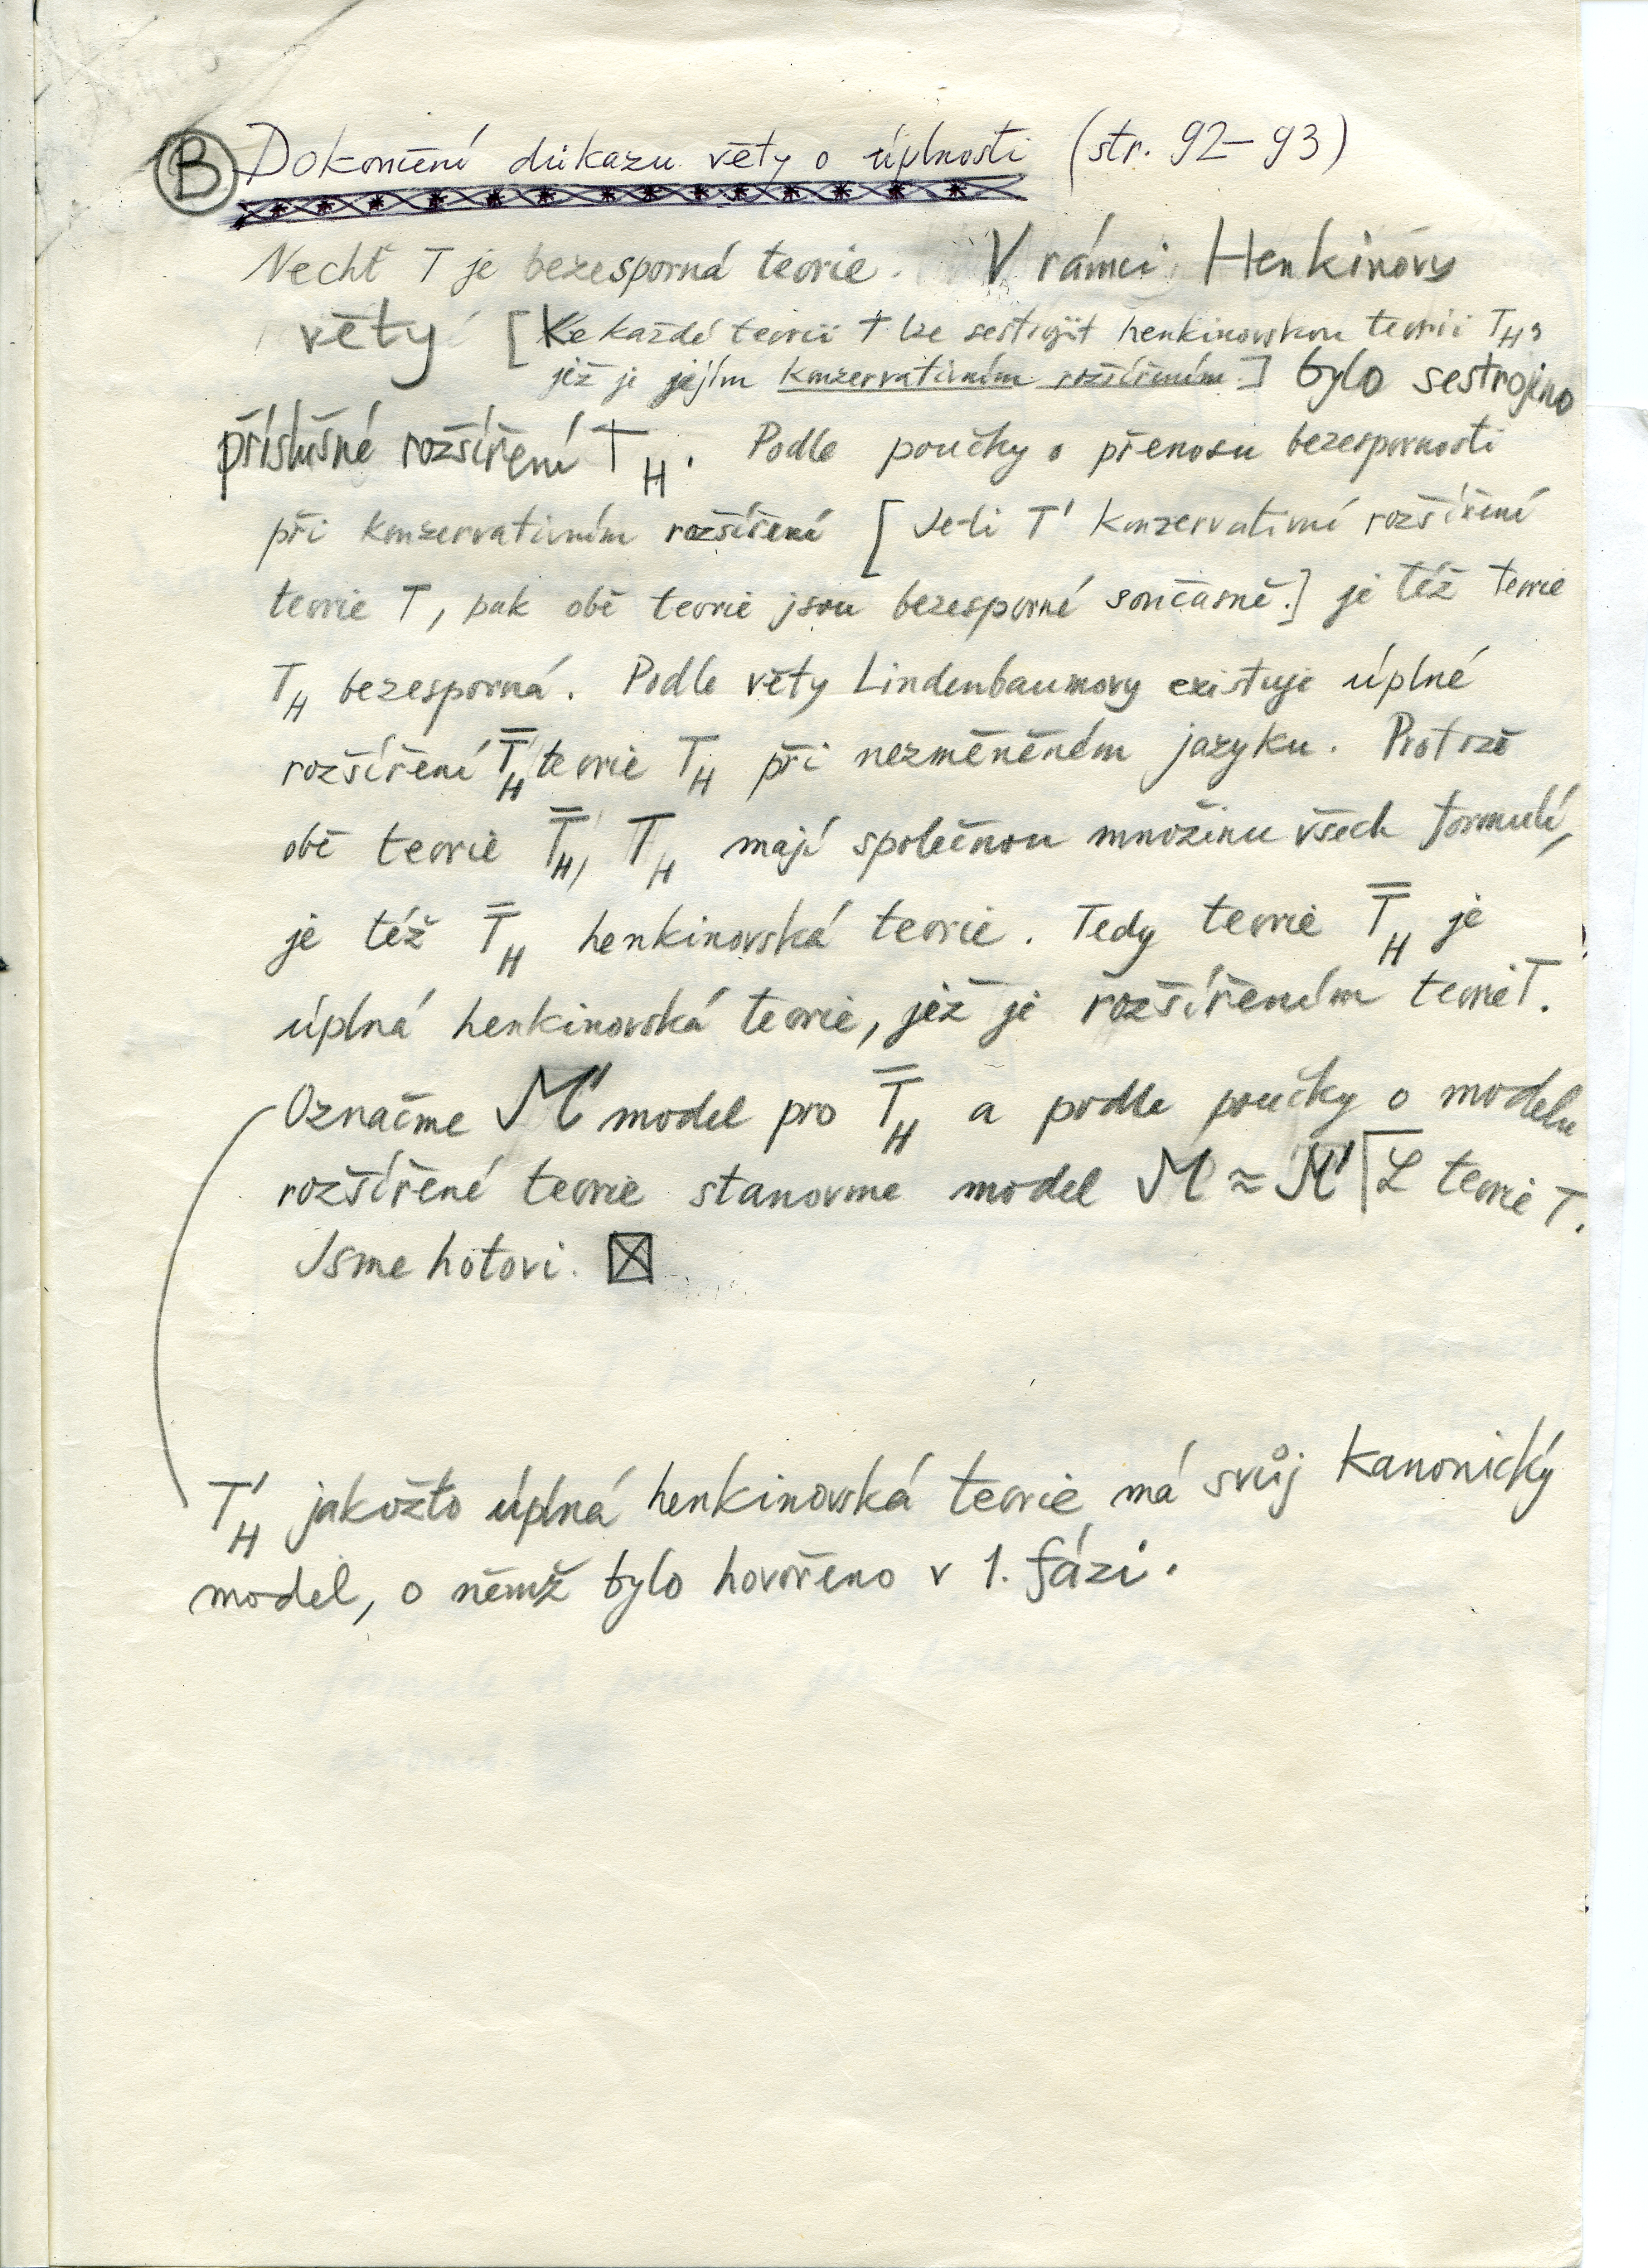 B Dokončení důkazu věty o úplnosti (str. 92–93)
Nechť T je bezesporná teorie. V rámci Henkinovy
věty [Ke každé teorii T lze sestrojit henkinovskou teorii T_H,
jež je jejím konzervativním rozšířením.] bylo sestrojeno
příslušné rozšíření T_H. Podle poučky o přenosu bezespornosti
při konzervativním rozšíření [Je-li T' konzervativní rozšíření
teorie T, pak obě teorie jsou bezesporné současně.] je též teorie
T_H bezesporná. Podle věty Lindenbaumovy existuje úplné
rozšíření T̿_H teorie T_H při nezměněném jazyku. Protože
obě teorie T̿_H, T_H mají společnou množinu všech formulí,
je též T̿_H henkinovská teorie. Tedy teorie T̿_H je
úplná henkinovská teorie, jež je rozšířením teorie T.
Označme M' model pro T̿_H a podle poučky o modelu
rozšířené teorie stanovme model M ≈ M'⌈L teorie T.
Jsme hotovi. ☒
T'_H jakožto úplná henkinovská teorie má svůj kanonický
model, o němž bylo hovořeno v 1. fázi.